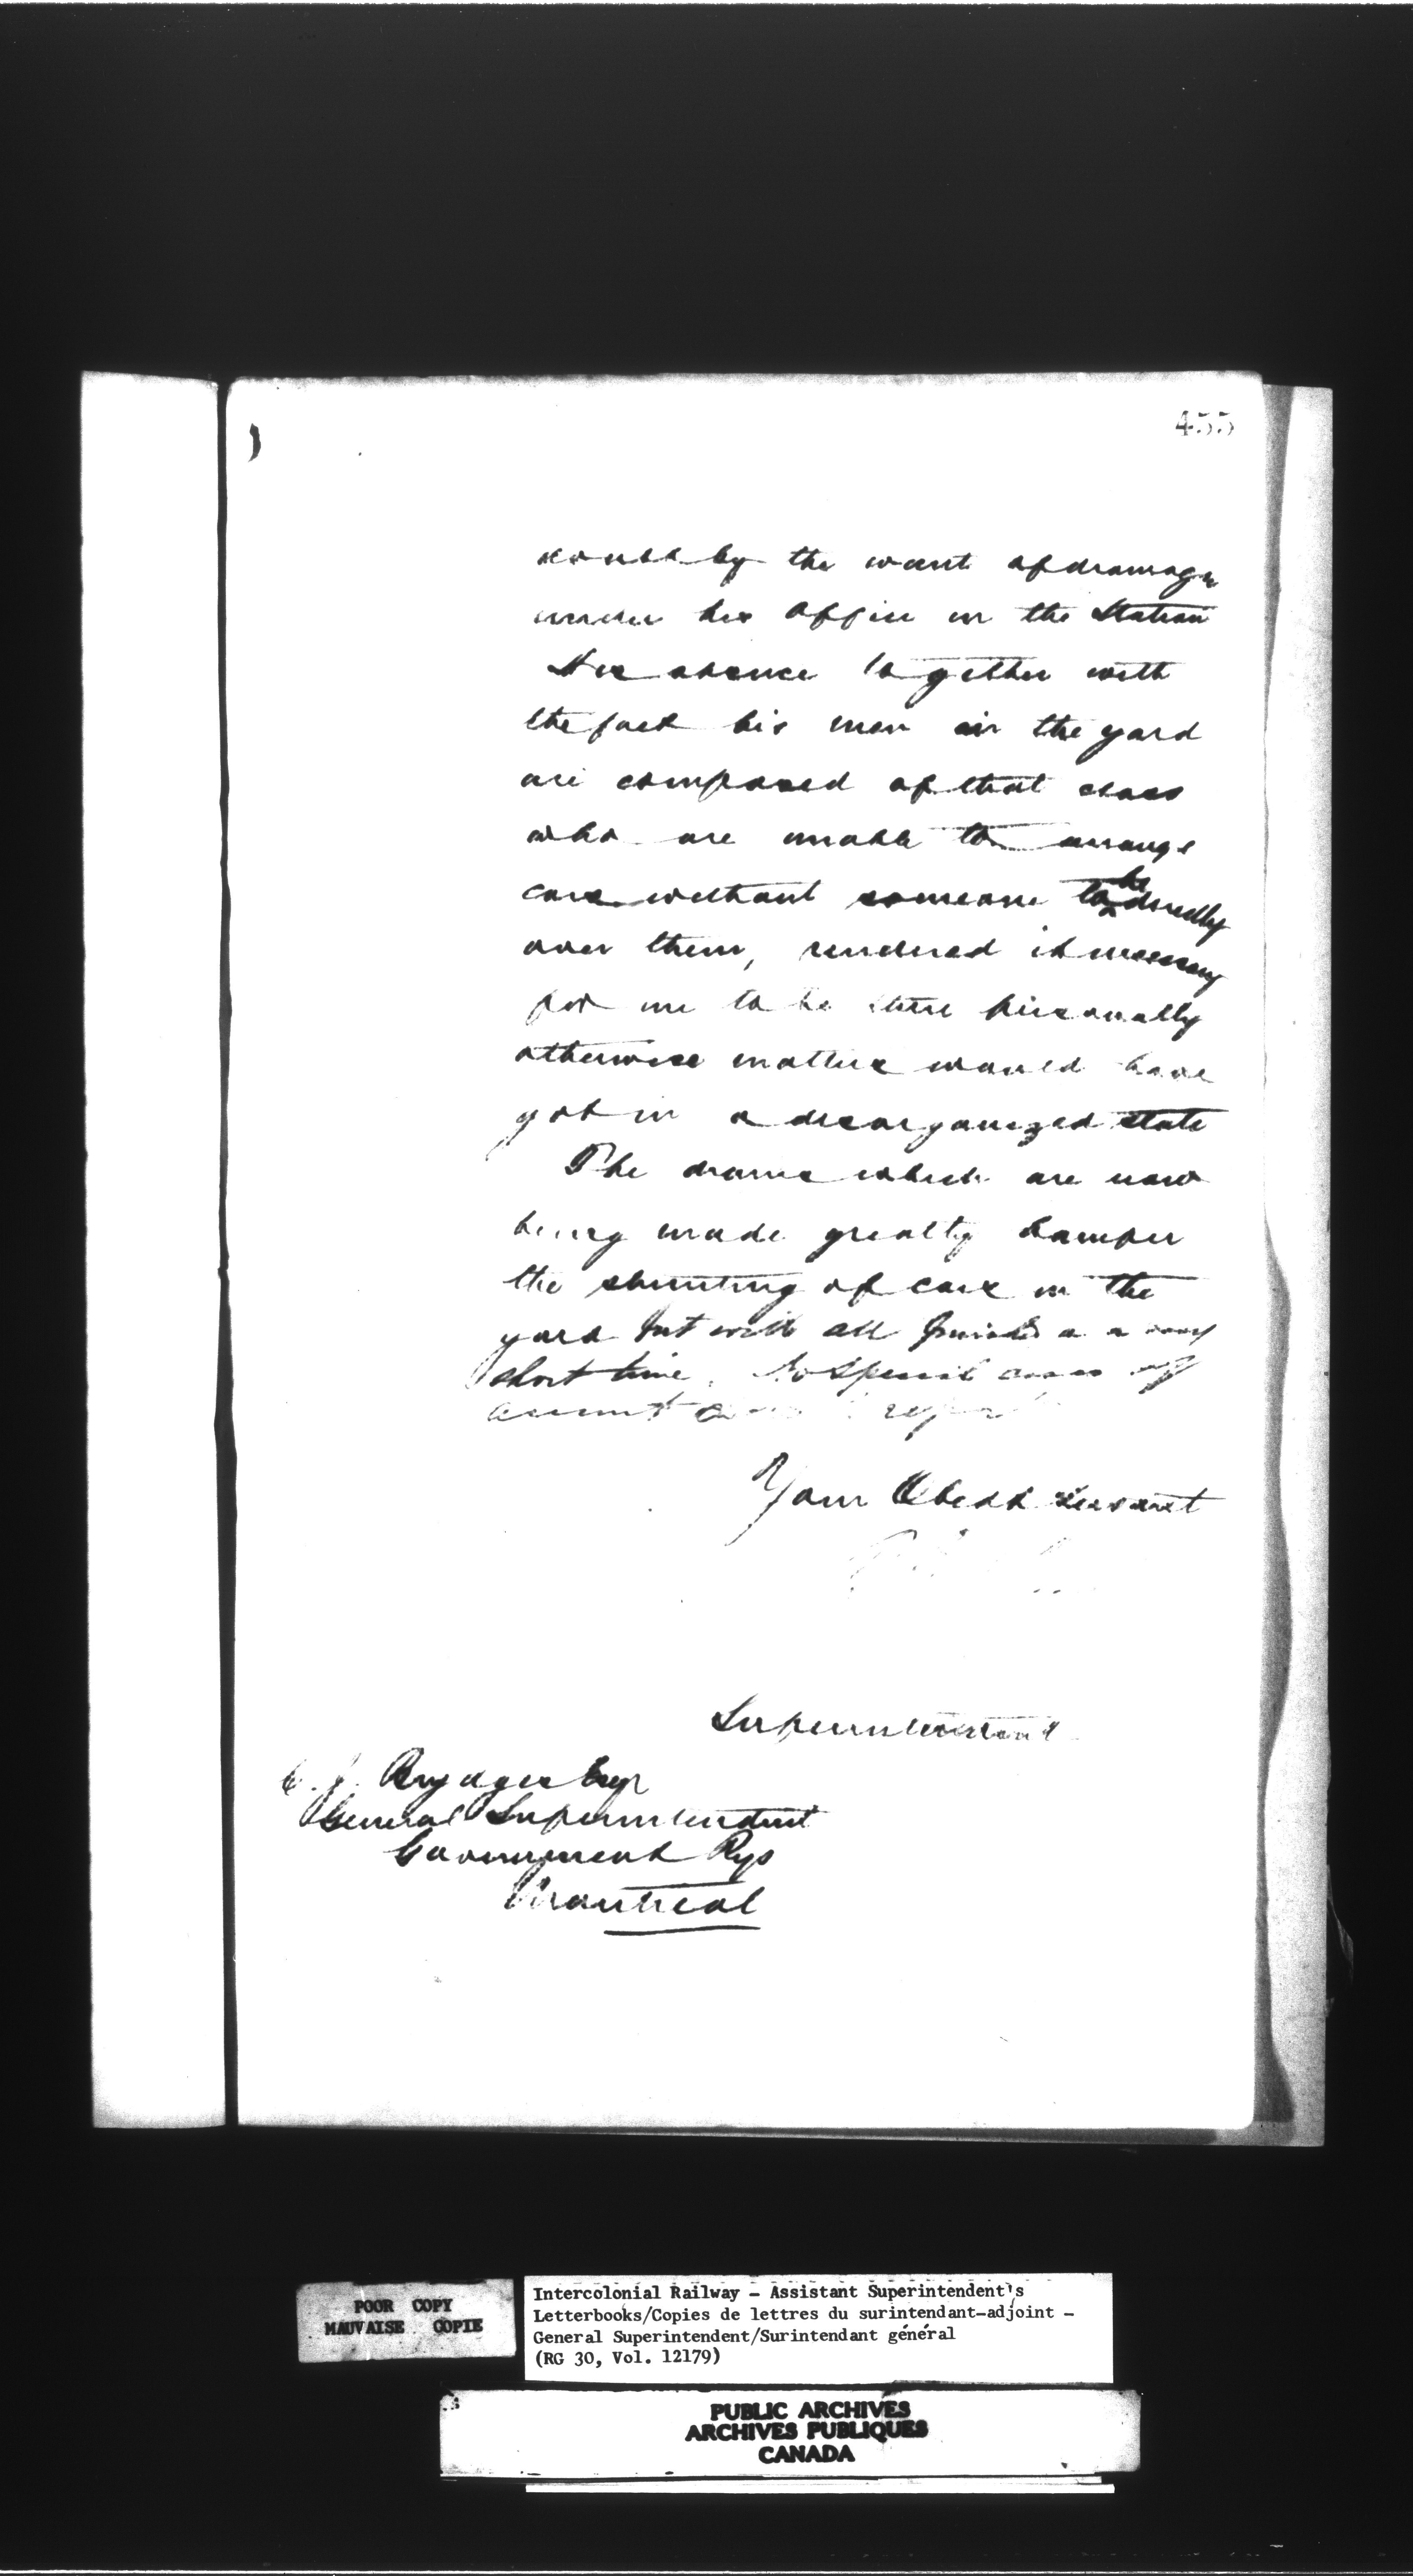 455
by the want of drainage
under his office in the Station
His absence together with
the fact his men in the yard
are composed of that class
who are unable to arrange
cars without someone to be directly
over them, rendered it necessary
for me to be there personally
otherwise matters would have
got in a disorganized state
The drains which are now
being made greatly hamper
the shunting of cars in the
yard but will all finished a a very
short time. No special cases of
Your Obedt Servant
Superintendent
C. J. Brydges Esqr
General Superintendent
Government Rys
Montreal
POOR COPY
MAUVAISE COPIE
Intercolonial Railway - Assistant Superintendent's
Letterbooks/Copies de lettres du surintendant-adjoint -
General Superintendent/Surintendant général
(RG 30, Vol. 12179)
PUBLIC ARCHIVES
ARCHIVES PUBLIQUES
CANADA